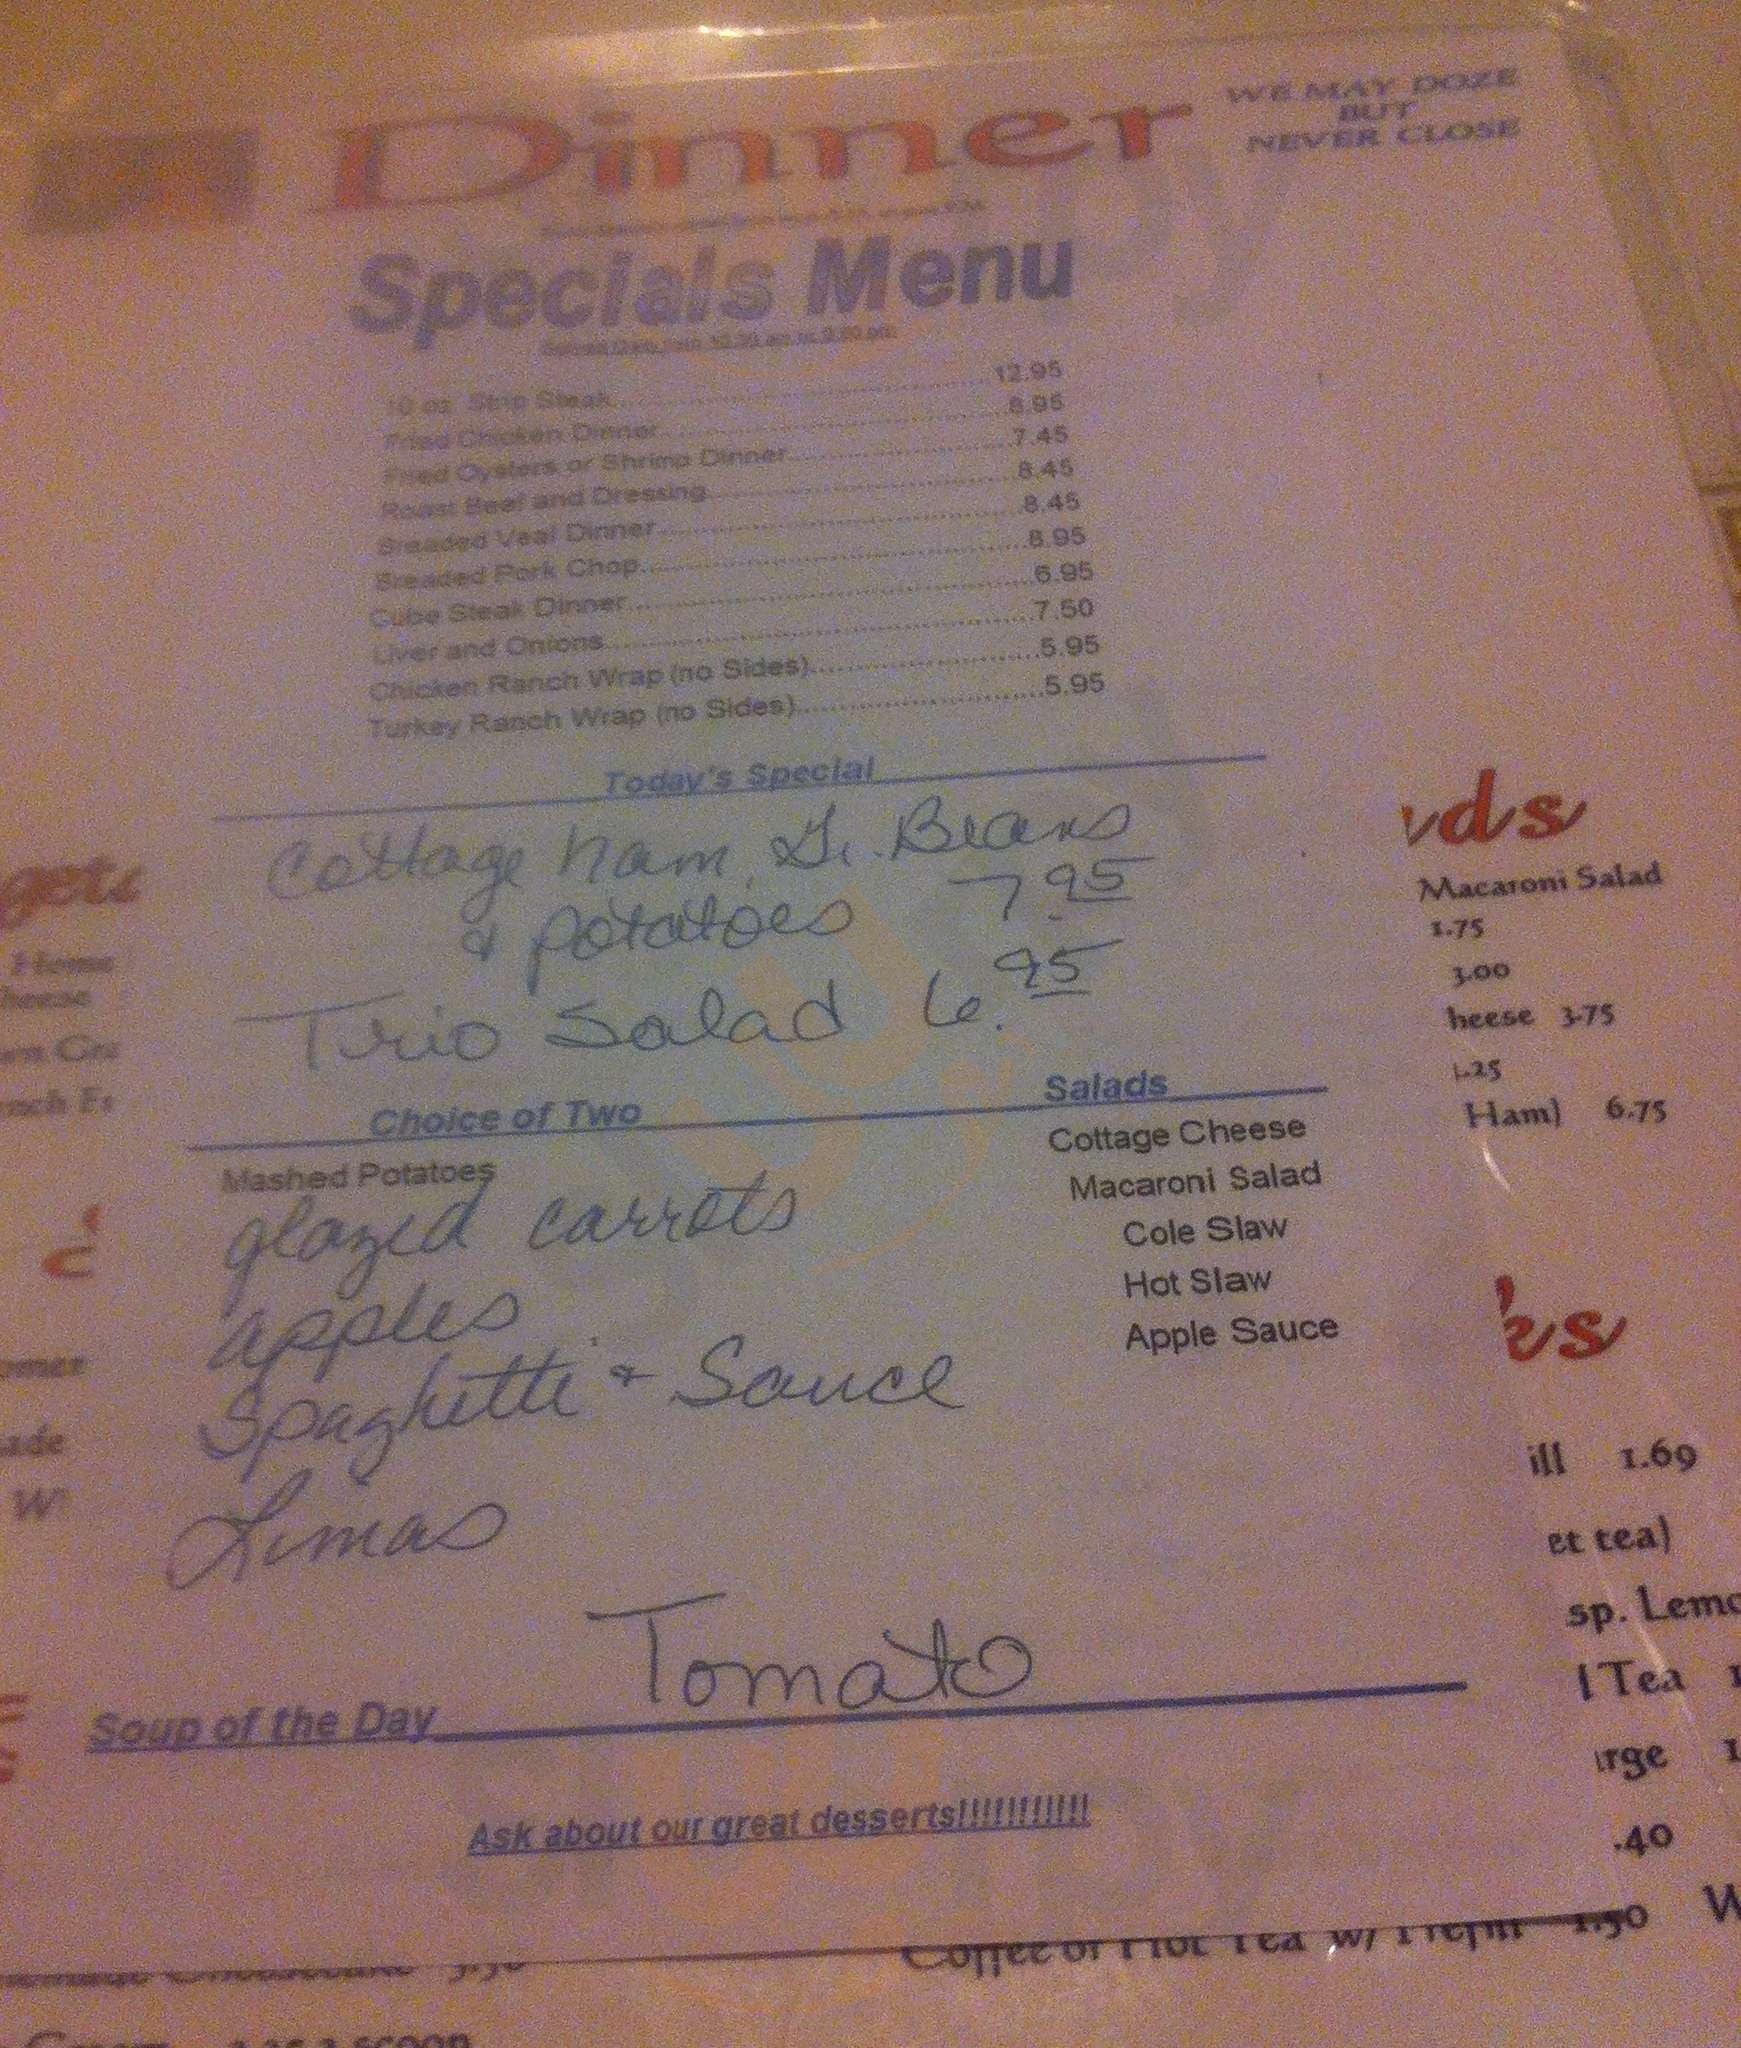 Dinner
WE MAY DOZE
BUT
NEVER CLOSE
Specials Menu
10 oz. Strip Steak 12.95
Fried Chicken Dinner 8.95
Fried Oysters or Shrimp Dinner 7.45
Roast Beef and Dressing 8.45
Breaded Veal Dinner 8.45
Breaded Pork Chop 8.95
Cube Steak Dinner 6.95
Liver and Onions 7.50
Chicken Ranch Wrap (no Sides) 5.95
Turkey Ranch Wrap (no Sides) 5.95
Today's Special
Cottage ham, Gr. Beans
& potatoes 7.95
Trio Salad 6.95
Choice of Two
Mashed Potatoes
glazed carrots
apples
Spaghetti & Sauce
Limas
Salads
Cottage Cheese
Macaroni Salad
Cole Slaw
Hot Slaw
Apple Sauce
Tomato
Soup of the Day
Ask about our great desserts!!!!!!!!!!!
Home
heese
ade
Macaroni Salad
1.75
3.00
heese 3.75
Ham) 6.75
ill 1.69
et tea)
sp. Lemo
Tea
rge
.40
Coffee or Hot Tea w/ 1 refill 1.50
scoop